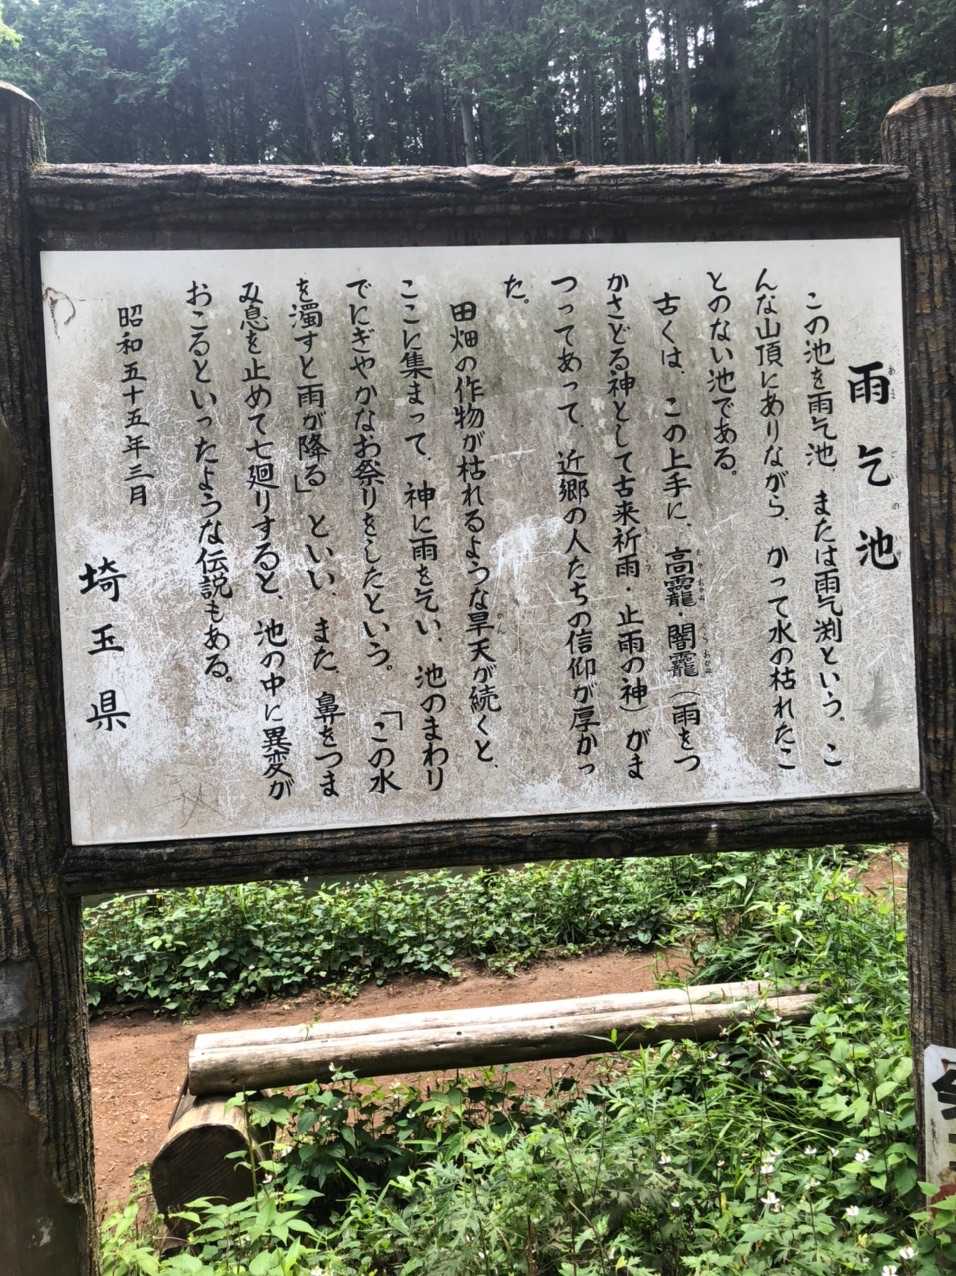 雨乞池
この池を雨乞池 または雨乞渕という。こ
んな山頂にありながら、かって水の枯れたこ
とのない池である。
古くは、この上手に、高龗・闇龗(雨をつ
かさどる神として古来祈雨・止雨の神)がま
つってあって、近郷の人たちの信仰が厚かっ
た。
田畑の作物が枯れるような旱天が続くと、
ここに集まって、神に雨を乞い、池のまわり
でにぎやかなお祭りをしたという。「この水
を濁すと雨が降る」といい、また、鼻をつま
み息を止めて七廻りすると、池の中に異変が
おこるといったような伝説もある。
昭和五十五年三月
埼玉県